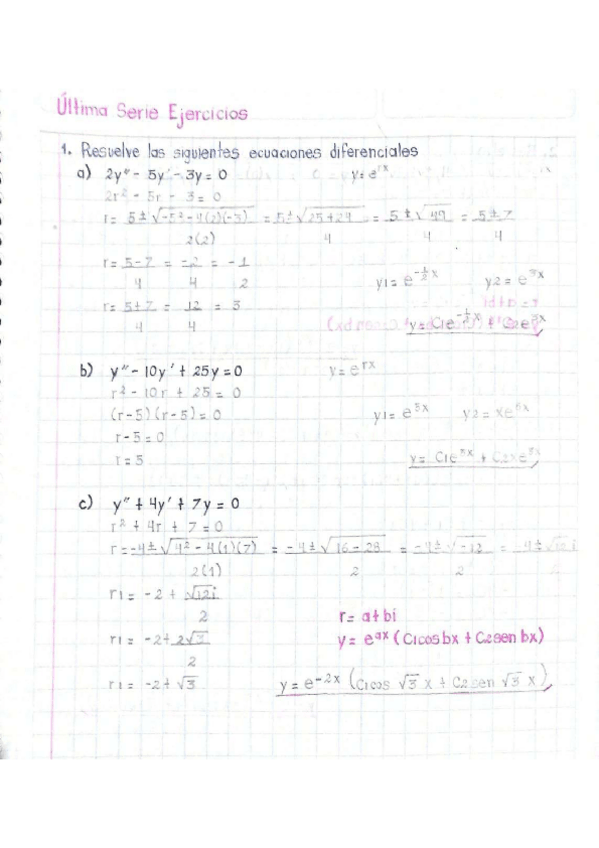 Última Serie Ejercicios
1. Resuelve las siguientes ecuaciones diferenciales
a) 2y" - 5y' - 3y = 0 y = e^rx
2r² - 5r - 3 = 0
r = 5 ± √-5² - 4(2)(-3) / 2(2) = 5 ± √25+24 / 4 = 5 ± √49 / 4 = 5 ± 7 / 4
r = 5-7 / 4 = -2 / 4 = -1 / 2 y1 = e^-½x y2 = e^3x
r = 5+7 / 4 = 12 / 4 = 3
y = C1e^-½x + C2e^3x
b) y" - 10y' + 25y = 0 y = e^rx
r² - 10r + 25 = 0
(r-5)(r-5) = 0 y1 = e^5x y2 = xe^5x
r - 5 = 0
r = 5 y = C1e^5x + C2xe^5x
c) y" + 4y' + 7y = 0
r² + 4r + 7 = 0
r = -4 ± √4² - 4(1)(7) / 2(1) = -4 ± √16 - 28 / 2 = -4 ± √-12 / 2 = -4 ± √12 i
r1 = -2 + √12i / 2 r = a+bi
r1 = -2 + 2√3 / 2 y = e^ax (C1cos bx + C2sen bx)
r1 = -2 + √3 y = e^-2x (C1cos √3 x + C2 sen √3 x)